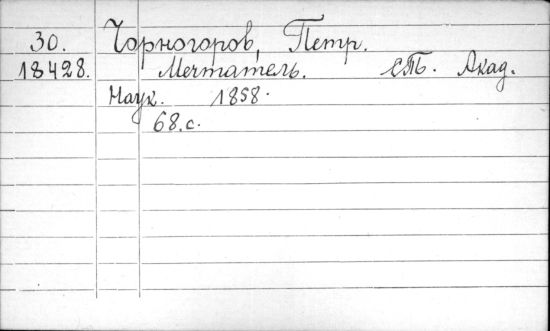 30. Чорногоров, Петр.
18428. Мечтатель. СПб. Акад.
Наук. 1858.
68.с.